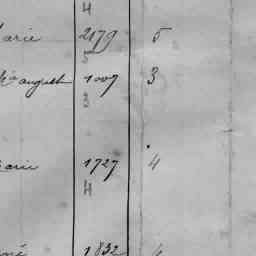 4
arie 2179 5
5
august 1007 3
3
arie 1727 4
4
né 1832 4